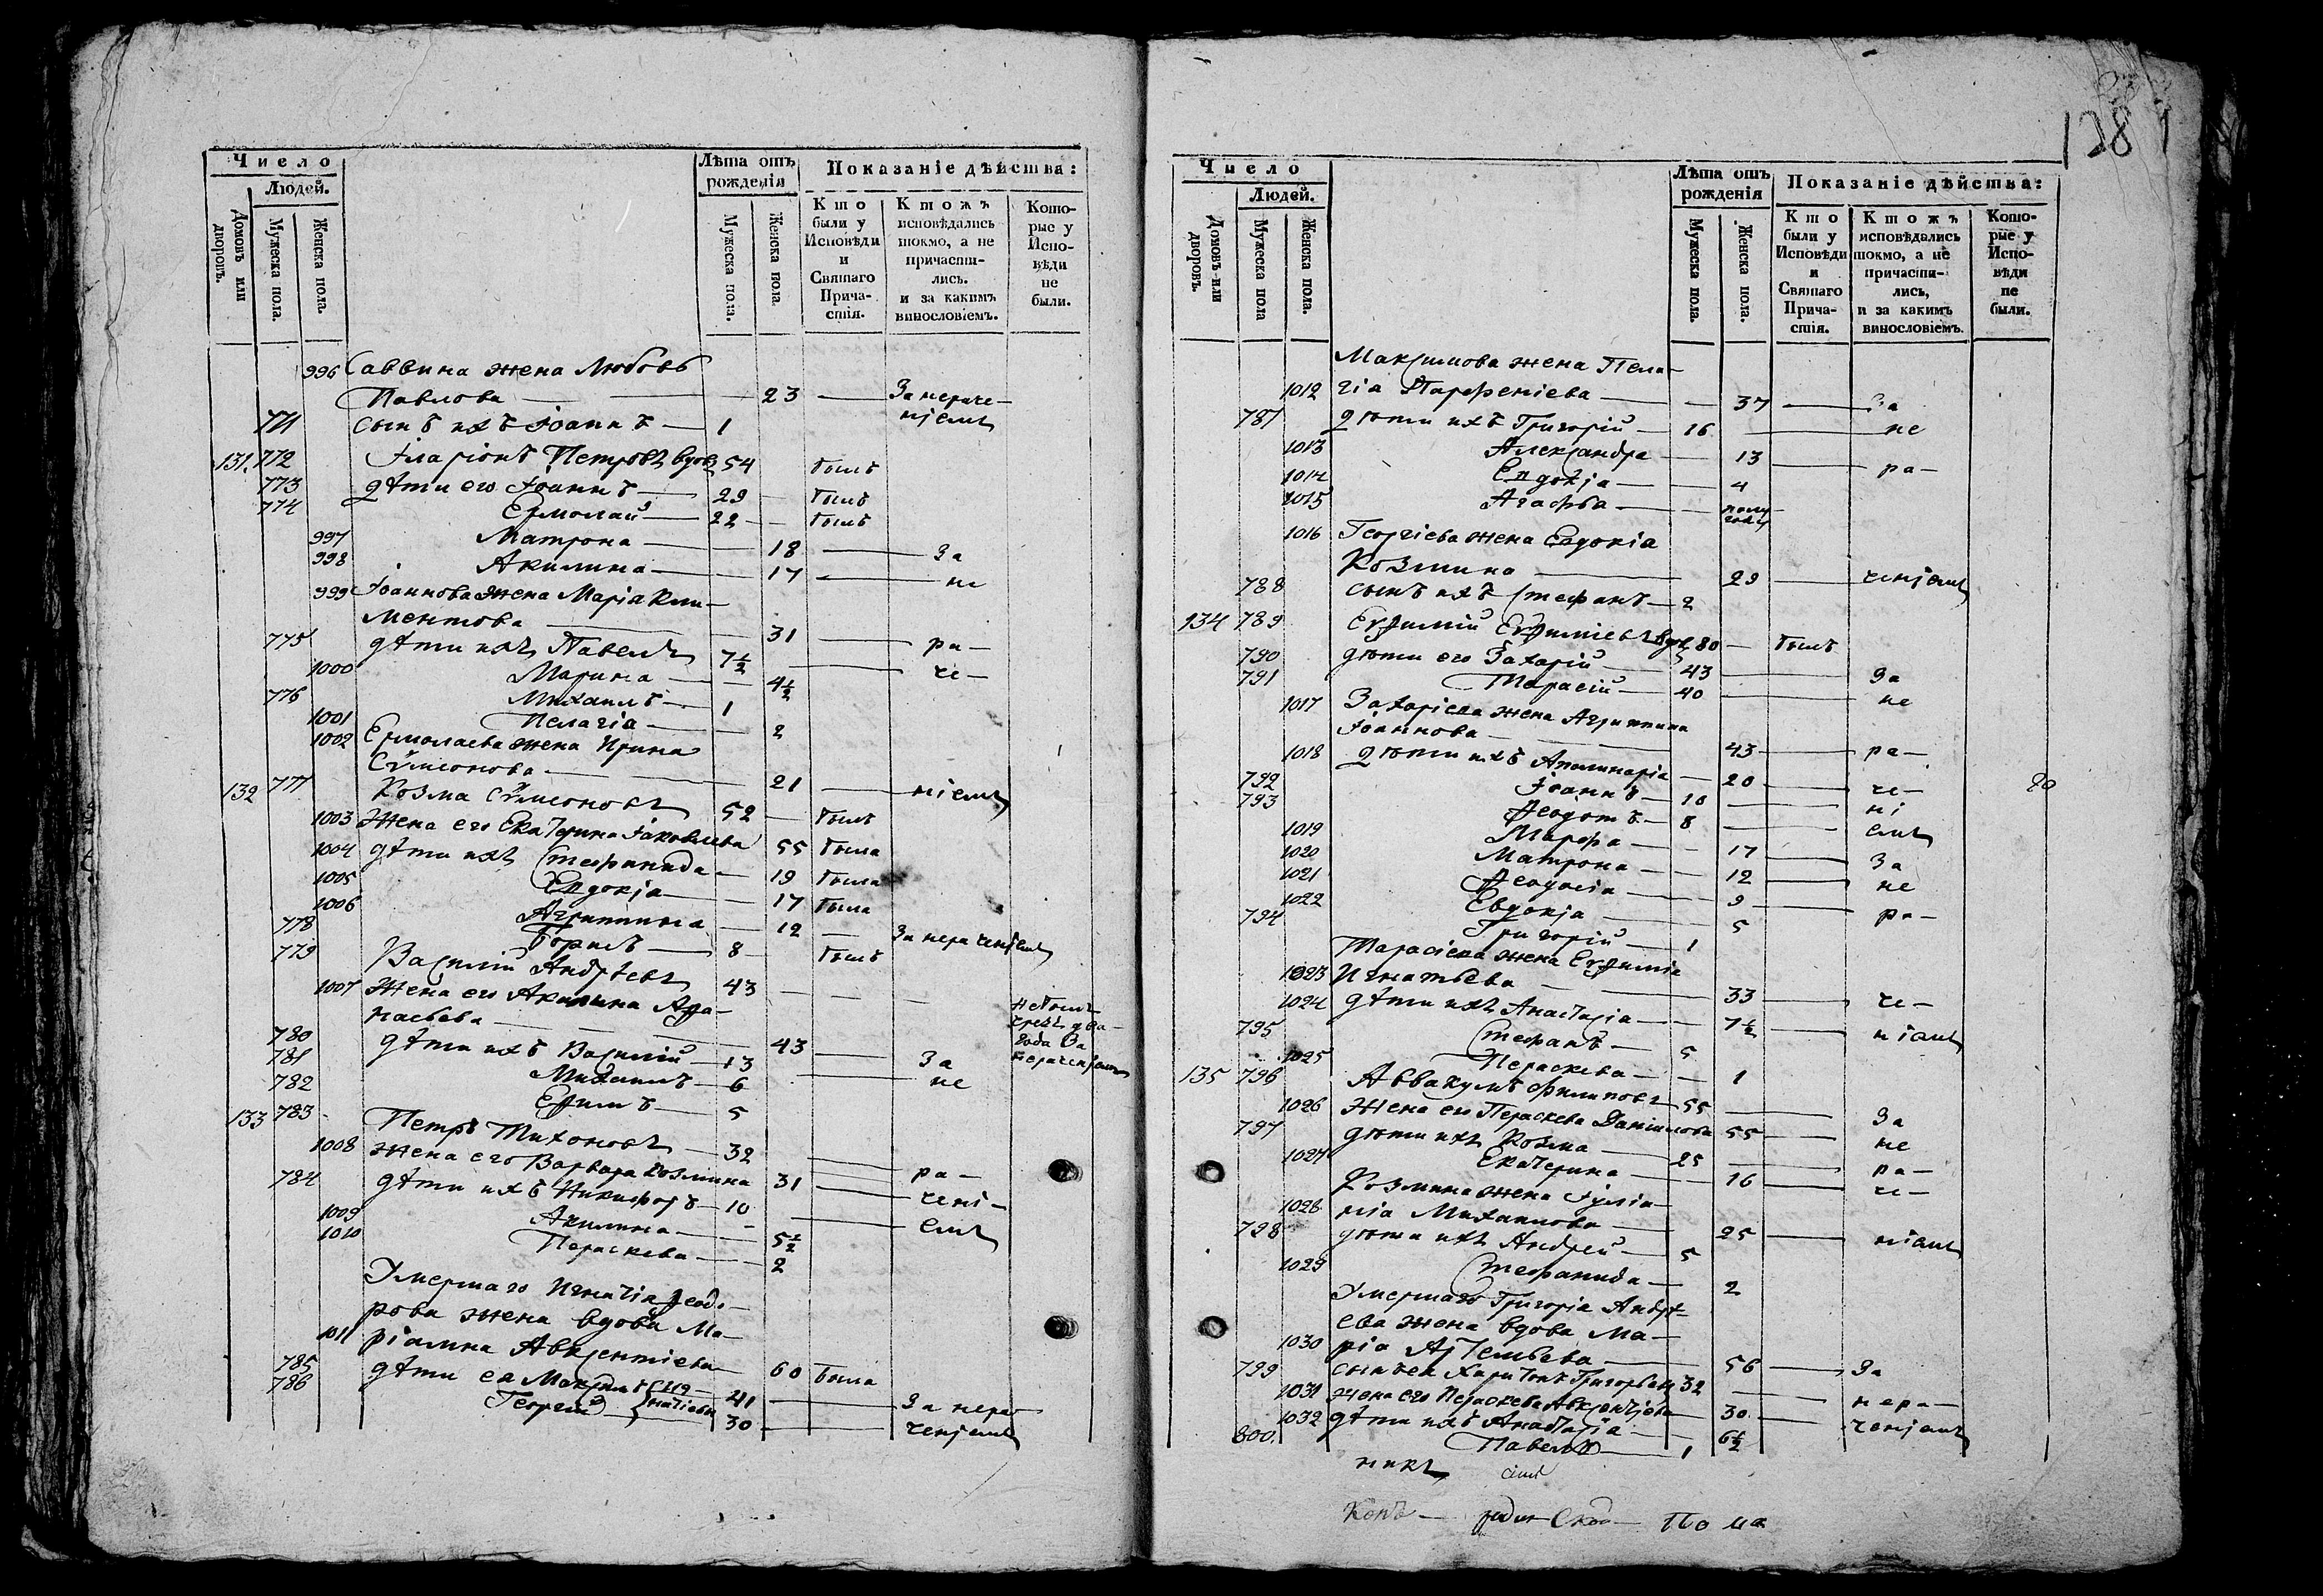 Число
Людей.
Домовъ или дворовъ.
Мужеска пола.
Женска пола.
Лѣта отъ рожденія
Мужеска пола.
Женска пола.
Показаніе дѣйства:
Кто были у Исповѣди и Святаго Причастія.
Ктожъ исповѣдались токмо, а не причастились. и за какимъ винословіемъ.
Которые у Исповѣди не были.
996 Саввина жена Любовь
Павлова — 23 — За нераче-
771 сынъ ихъ Іоаннъ — 1 ніемъ
131. 772 Иларіонъ Петровъ вдовъ 54 былъ
773 дѣти его Іоаннъ — 29 — былъ
774 Ермолай — 22 — былъ
997 Матрона — 18 — За
998 Акилина — 17 — не
999 Іоаннова жена Марія Кли-
ментова — 31 — ра-
775 дѣти ихъ Павелъ 7½ — че-
1000 Марина — 4½
776 Михаилъ — 1
1001 Пелагія — 2
1002 Ермолаева жена Ирина
Сѵмеонова — 21 — ніемъ
132 777 Козма Сѵмеоновъ 52 — былъ
1003 Жена его Екатерина Іаковлева 55 была
1004 дѣти ихъ Стефанида — 19 была
1005 Евдокія — 17 была
1006 Агриппина — 12 — За нераченіемъ
778 Борисъ — 8 — былъ
779 Василій Андреевъ 43 — — —
1007 Жена его Акилина Аѳа-
насьева — 43 —
не былъ
чрезъ два
года За
нераченіемъ
780 дѣти ихъ Василій — 13 За
781 Михаилъ — 6 не
782 Ефимъ — 5
133 783 Петръ Тихоновъ — 32
1008 жена его Варвара Козмина 31 — ра-
784 дѣти ихъ Никифоръ — 10 чені-
1009 Акилина — 5½ емъ
1010 Параскева — 2
Умершаго Игнатія Ѳеодо-
рова жена вдова Ма-
1011 ріамна Авксентіева — 60 была
785 дѣти ея Максимъ Игнатіевы — 41 — За нера-
786 Георгій — 30 — ченіемъ
128
Число
Людей.
Домовъ или дворовъ.
Мужеска пола
Женска пола.
Лѣта отъ рожденія
Мужеска пола.
Женска пола.
Показаніе дѣйства:
Кто были у Исповѣди и Святаго Причастія.
Ктожъ исповѣдались токмо, а не причастились, и за какимъ винословіемъ.
Которые у Исповѣди не были.
Максимова жена Пела-
1012 гія Парфеніева — 37 — За
787 дѣти ихъ Григорій — 16 — не
1013 Александра — 13 — ра-
1014 Евдокія — 4
1015 Агафья — полу года
1016 Георгіева жена Евдокіа
Козмина — 29 — ченіемъ
788 сынъ ихъ Стефанъ — 2
134 789 Евѳимій Евѳиміевъ вдовъ 80 — былъ
790 дѣти его Захарій — 43 — За
791 Тарасій — 40 — не
1017 Захаріева жена Агриппина
Іоаннова — 43 — ра-
1018 дѣти ихъ Аполинарія — 20 — че-
792 Іоаннъ — 10 — ні
793 Ѳеодотъ — 8 — емъ
1019 Марфа — 17 — За
1020 Матрона — 12 — не
1021 Ѳеодосія — 9 — ра-
1022 Евдокія — 5
794 Григорій — 1
Тарасіева жена Евѳимія
1023 Игнатьева — 33 — че-
1024 дѣти ихъ Анастасія — 7½ — ніемъ
795 Стефанъ — 5
1025 Параскева — 1
135 796 Аввакумъ Филиповъ 55 — За
1026 Жена его Параскева Даніилова 55 — не
797 дѣти ихъ Козма — 25 — ра-
1027 Екатерина — 16 — че-
Козмина жена Іуліа-
1028 нія Михаилова — 25 — ніемъ
798 дѣти ихъ Андрей — 5
1029 Стефанида — 2
Умершаго Григорія Андре-
ева жена вдова Ма-
1030 рія Артемьева — 56 — За
799 сынъ ея Харитонъ Григорьевъ 32 — нера-
1031 жена его Параскева Авксентіева 30 — ченіемъ
1032 дѣти ихъ Анастасія — 6½
800. Павелъ — 1
никъ